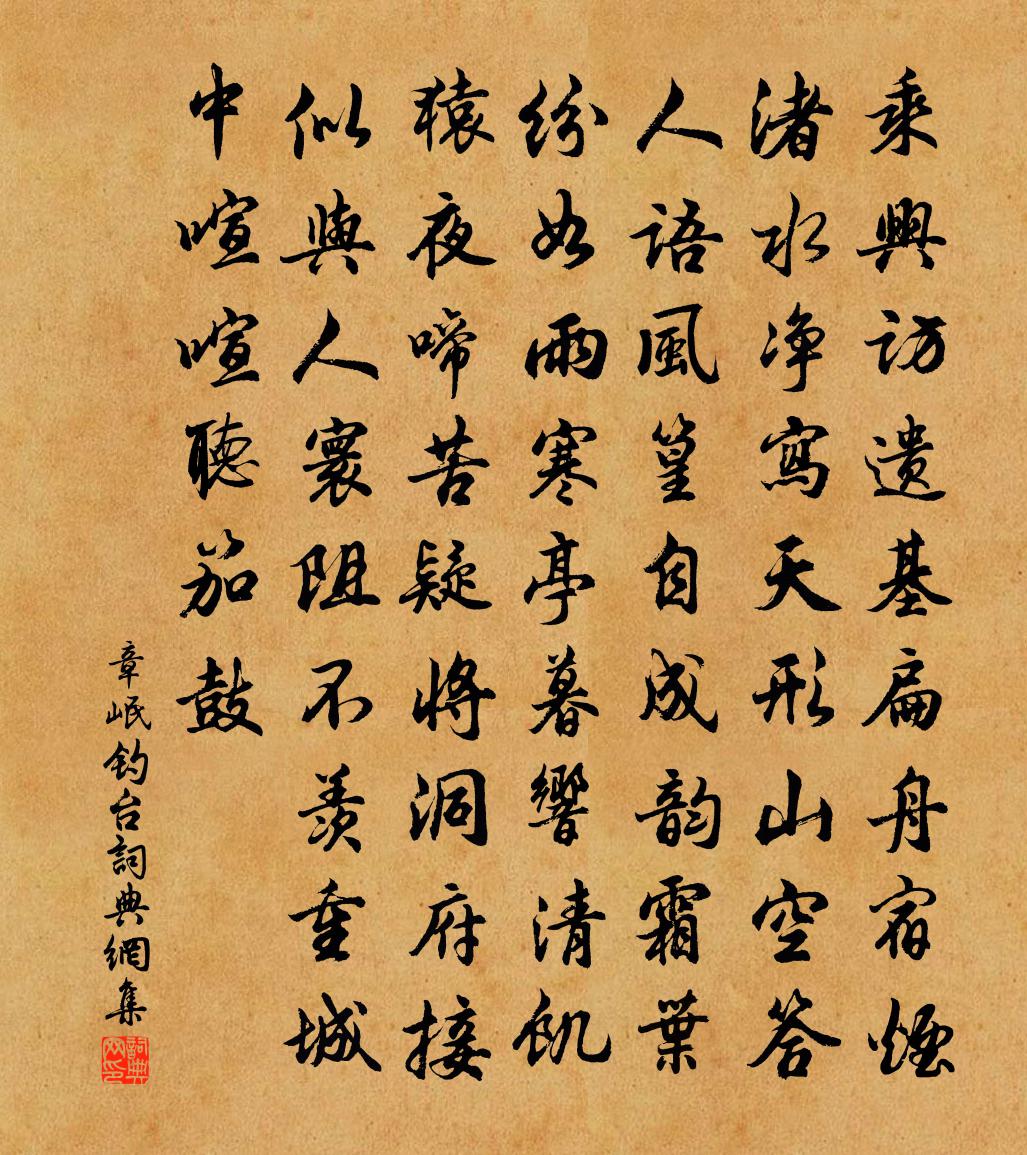 乘興訪遺基扁舟宿煙
渚水净寫天形山空答
人語風篁自成韵霜葉
紛如雨寒亭暮響清飢
猿夜啼苦疑將洞府接
似與人寰阻不羨重城
中喧喧聽笳鼓
章岷釣台詞典網集
詞典網印